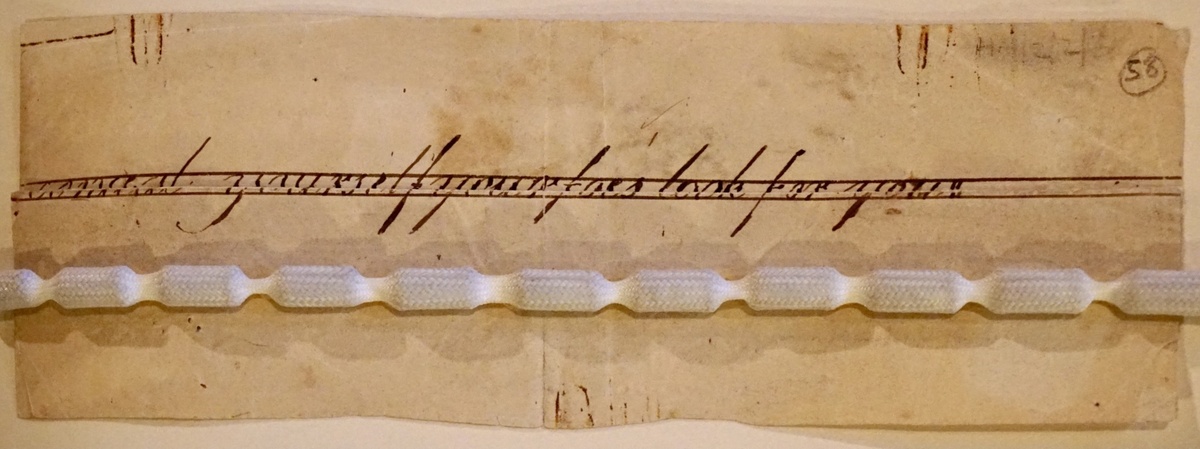 58
conceal yourself your foes look for you